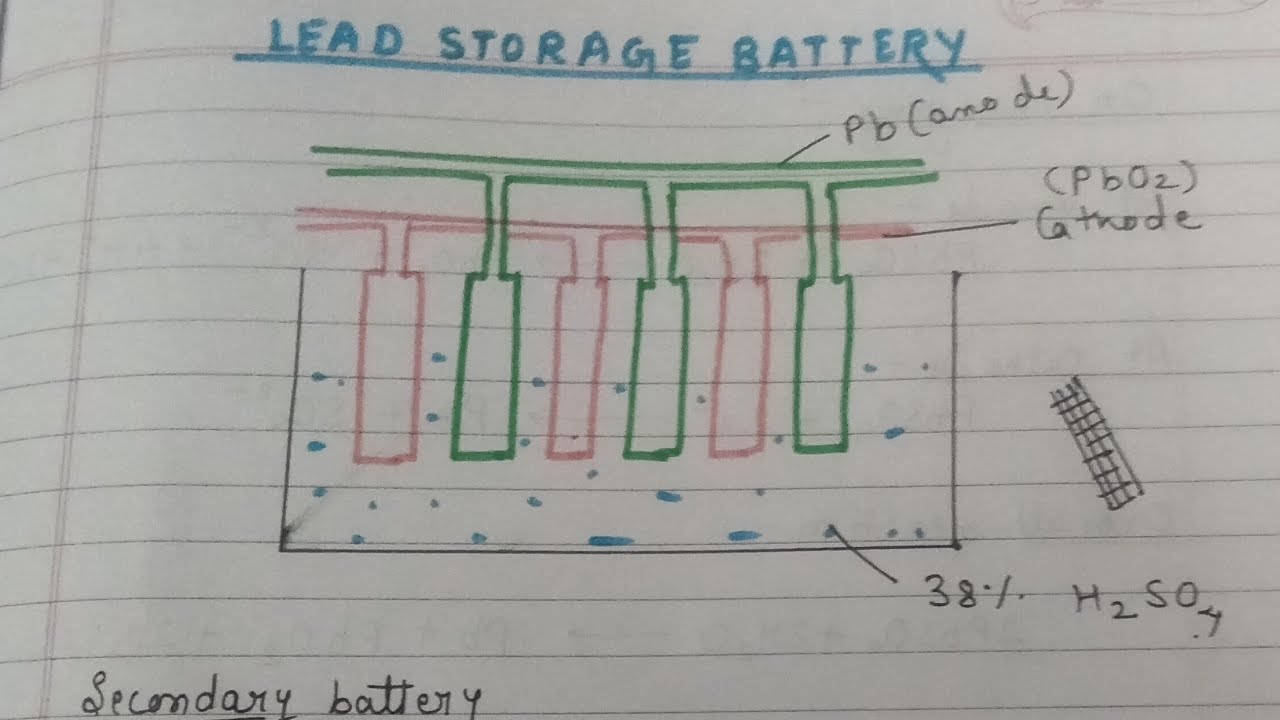 LEAD STORAGE BATTERY
Pb (anode)
(PbO2)
Cathode
38% H2SO4
Secondary battery